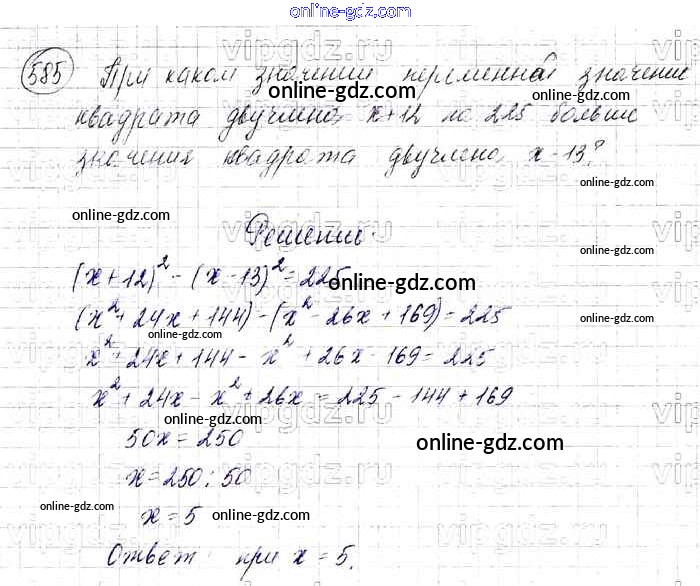 online-gdz.com
585 При каком значении переменной значение
online-gdz.com online-gdz.com
квадрата двучлена x+12 на 225 больше
значения квадрата двучлена x-13?
online-gdz.com
online-gdz.com
Решение.
(x+12)² - (x-13)² = 225
online-gdz.com
(x² + 24x + 144) - (x² - 26x + 169) = 225
online-gdz.com
x² + 24x + 144 - x² + 26x - 169 = 225
x² + 24x - x² + 26x = 225 - 144 + 169
online-gdz.com
50x = 250
online-gdz.com
x = 250 : 50
online-gdz.com
x = 5 online-gdz.com
online-gdz.com
Ответ: при x = 5.
vipgdz.ru